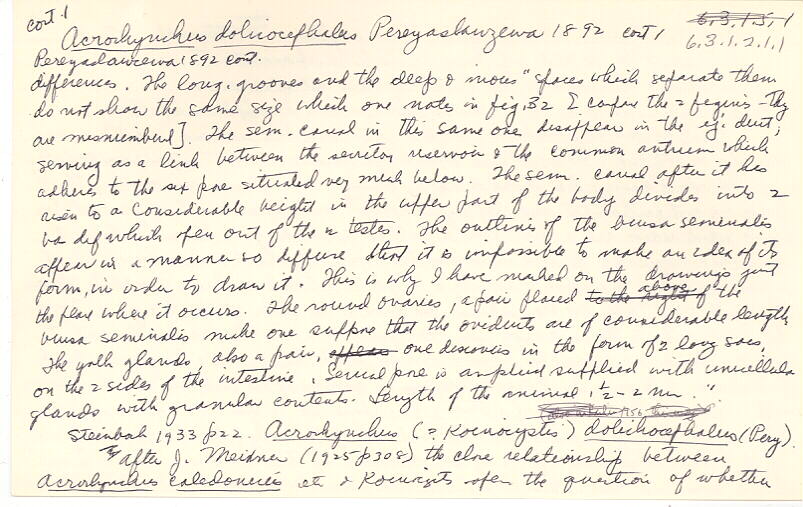 cont. 1
Acrorhynchus dolicocephalus Pereyaslawzewa 1892 cont 1
6.3.1.5.1
6.3.1.2.1.1
Pereyaslawzewa 1892 cont.
differences. The long. grooves and the deep & spaces which separate them
do not show the same size which one notes in fig. 32 the figures - They
are misnumbered]. The sem. canal in this same one disappear in the ej. duct,
serving as a link between the secretory reservoir & the common antrum which
adheres to the sex pore situated very much below. The sem. canal after it has
risen to a considerable height in the upper part of the body divides into 2
va def which open out of the 2 testes. The outlines of the bursa seminalis
appear in a manner so diffuse that it is impossible to make an idea of its
form, in order to draw it. This is why I have marked on the drawings just
the place where it occurs. The round ovaries, a pair placed to the right above of the
bursa seminalis make one suppose that the oviducts are of considerable length.
The yolk glands, also a pair, appear one discovers in the form of 2 long sacs,
on the 2 sides of the intestine. Sexual pore is amplied supplied with unicellular
glands with granular contents. Length of the animal 1½-2 mm."
Steinböck 1933 p22. Acrorhynchus (= Koinocystis) dolichocephalus (Perey).
"after J. Meixner (1925 p308) the close relationship between
Acrorhynchus caledonicus etc & open the question of whether